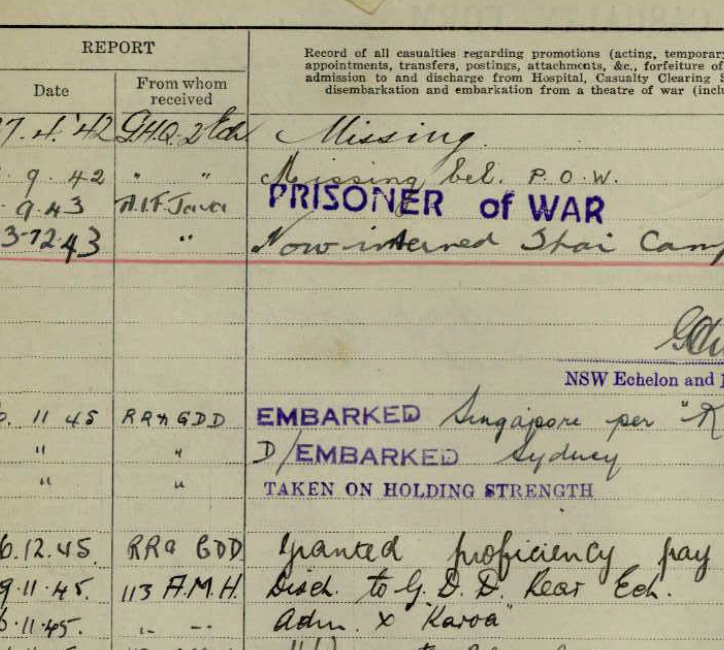 REPORT
Record of all casualties regarding promotions (acting, temporary
appointments, transfers, postings, attachments, &c., forfeiture of
admission to and discharge from Hospital, Casualty Clearing S
disembarkation and embarkation from a theatre of war (inclu
Date From whom
received
7.4.'42 G.H.Q. 2 Ech Missing.
9.42 " " Missing bel. P.O.W.
PRISONER of WAR
9.43 A.I.F. Java
43 " Now interned Camp
NSW Echelon and
11 45 GDD EMBARKED Singapore per "
" " D/EMBARKED Sydney
" " TAKEN ON HOLDING STRENGTH
6.12.45. GDD Granted proficiency pay
9.11.45. 113 A.M.H. Disch. to G.D.D. Rear Ech.
.11.45. " " Adm. x "Karoa"